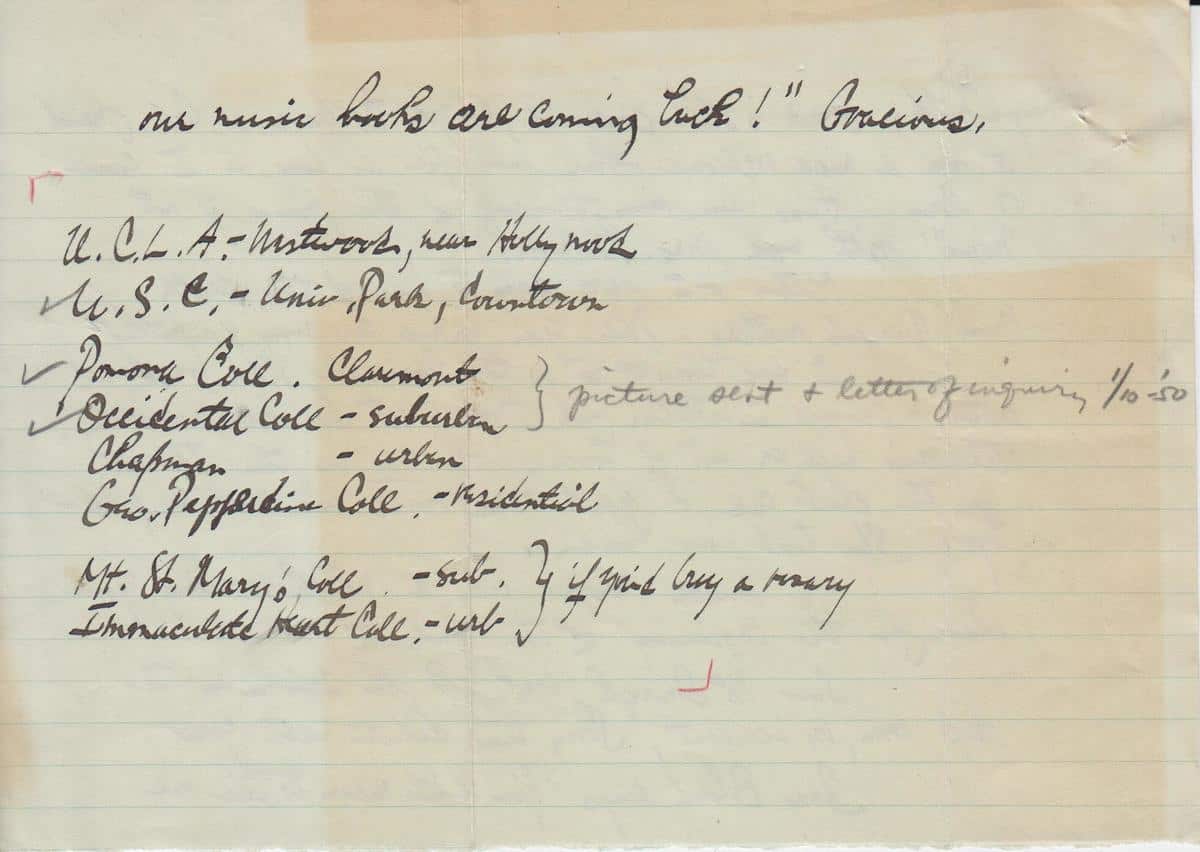 our music books are coming back!" Gracious.
U.C.L.A. - Westwood, near Hollywood
U.S.C. - Univ. Park, Downtown
Pomona Coll. Claremont
Occidental Coll - suburban } picture sent & letter of inquiry 1/10-'50
Chapman - urban
Geo. Pepperdine Coll. - residential
Mt. St. Mary's Coll. - sub. } if you'd buy a rosary
Immaculate Heart Coll. - urb